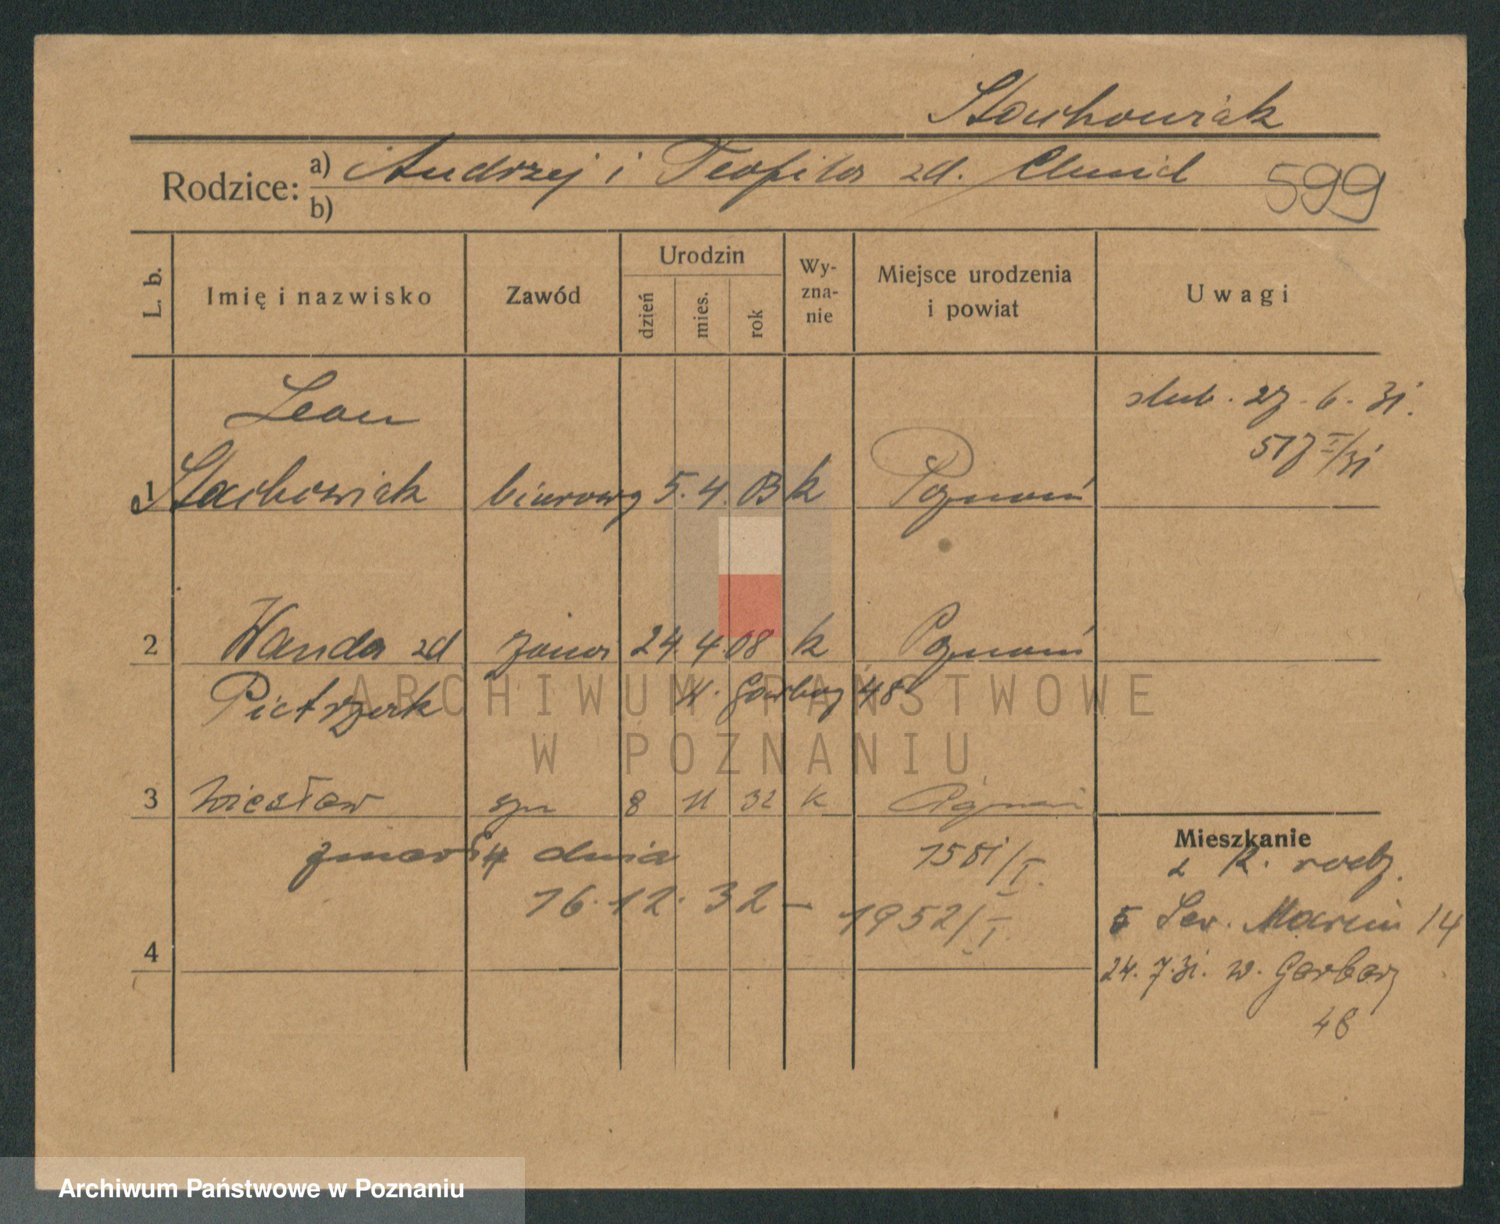 Stachowiak
Rodzice: a) Andrzej i Teofila zd. Chmiel 599
b)
L. b. Imię i nazwisko Zawód Urodzin dzień mies. rok Wy-zna-nie Miejsce urodzenia i powiat Uwagi
Leon ślub. 27.6.31.
517 I/31
1 Stachowiak biurowy 5. 4. 03 k Poznań
2 Wanda zd żona 24. 4. 08 k Poznań
Pietrzak W. Garbary 48
ARCHIWUM PAŃSTWOWE
W POZNANIU
3 Wiesław syn 8 11 32 k Poznań
Mieszkanie
zmarł dnia 1551/I. z k. rodz.
16.12.32 – 1952/I. 5 Św. Marcin 14
4 24.7.31. W. Garbary
48
Archiwum Państwowe w Poznaniu